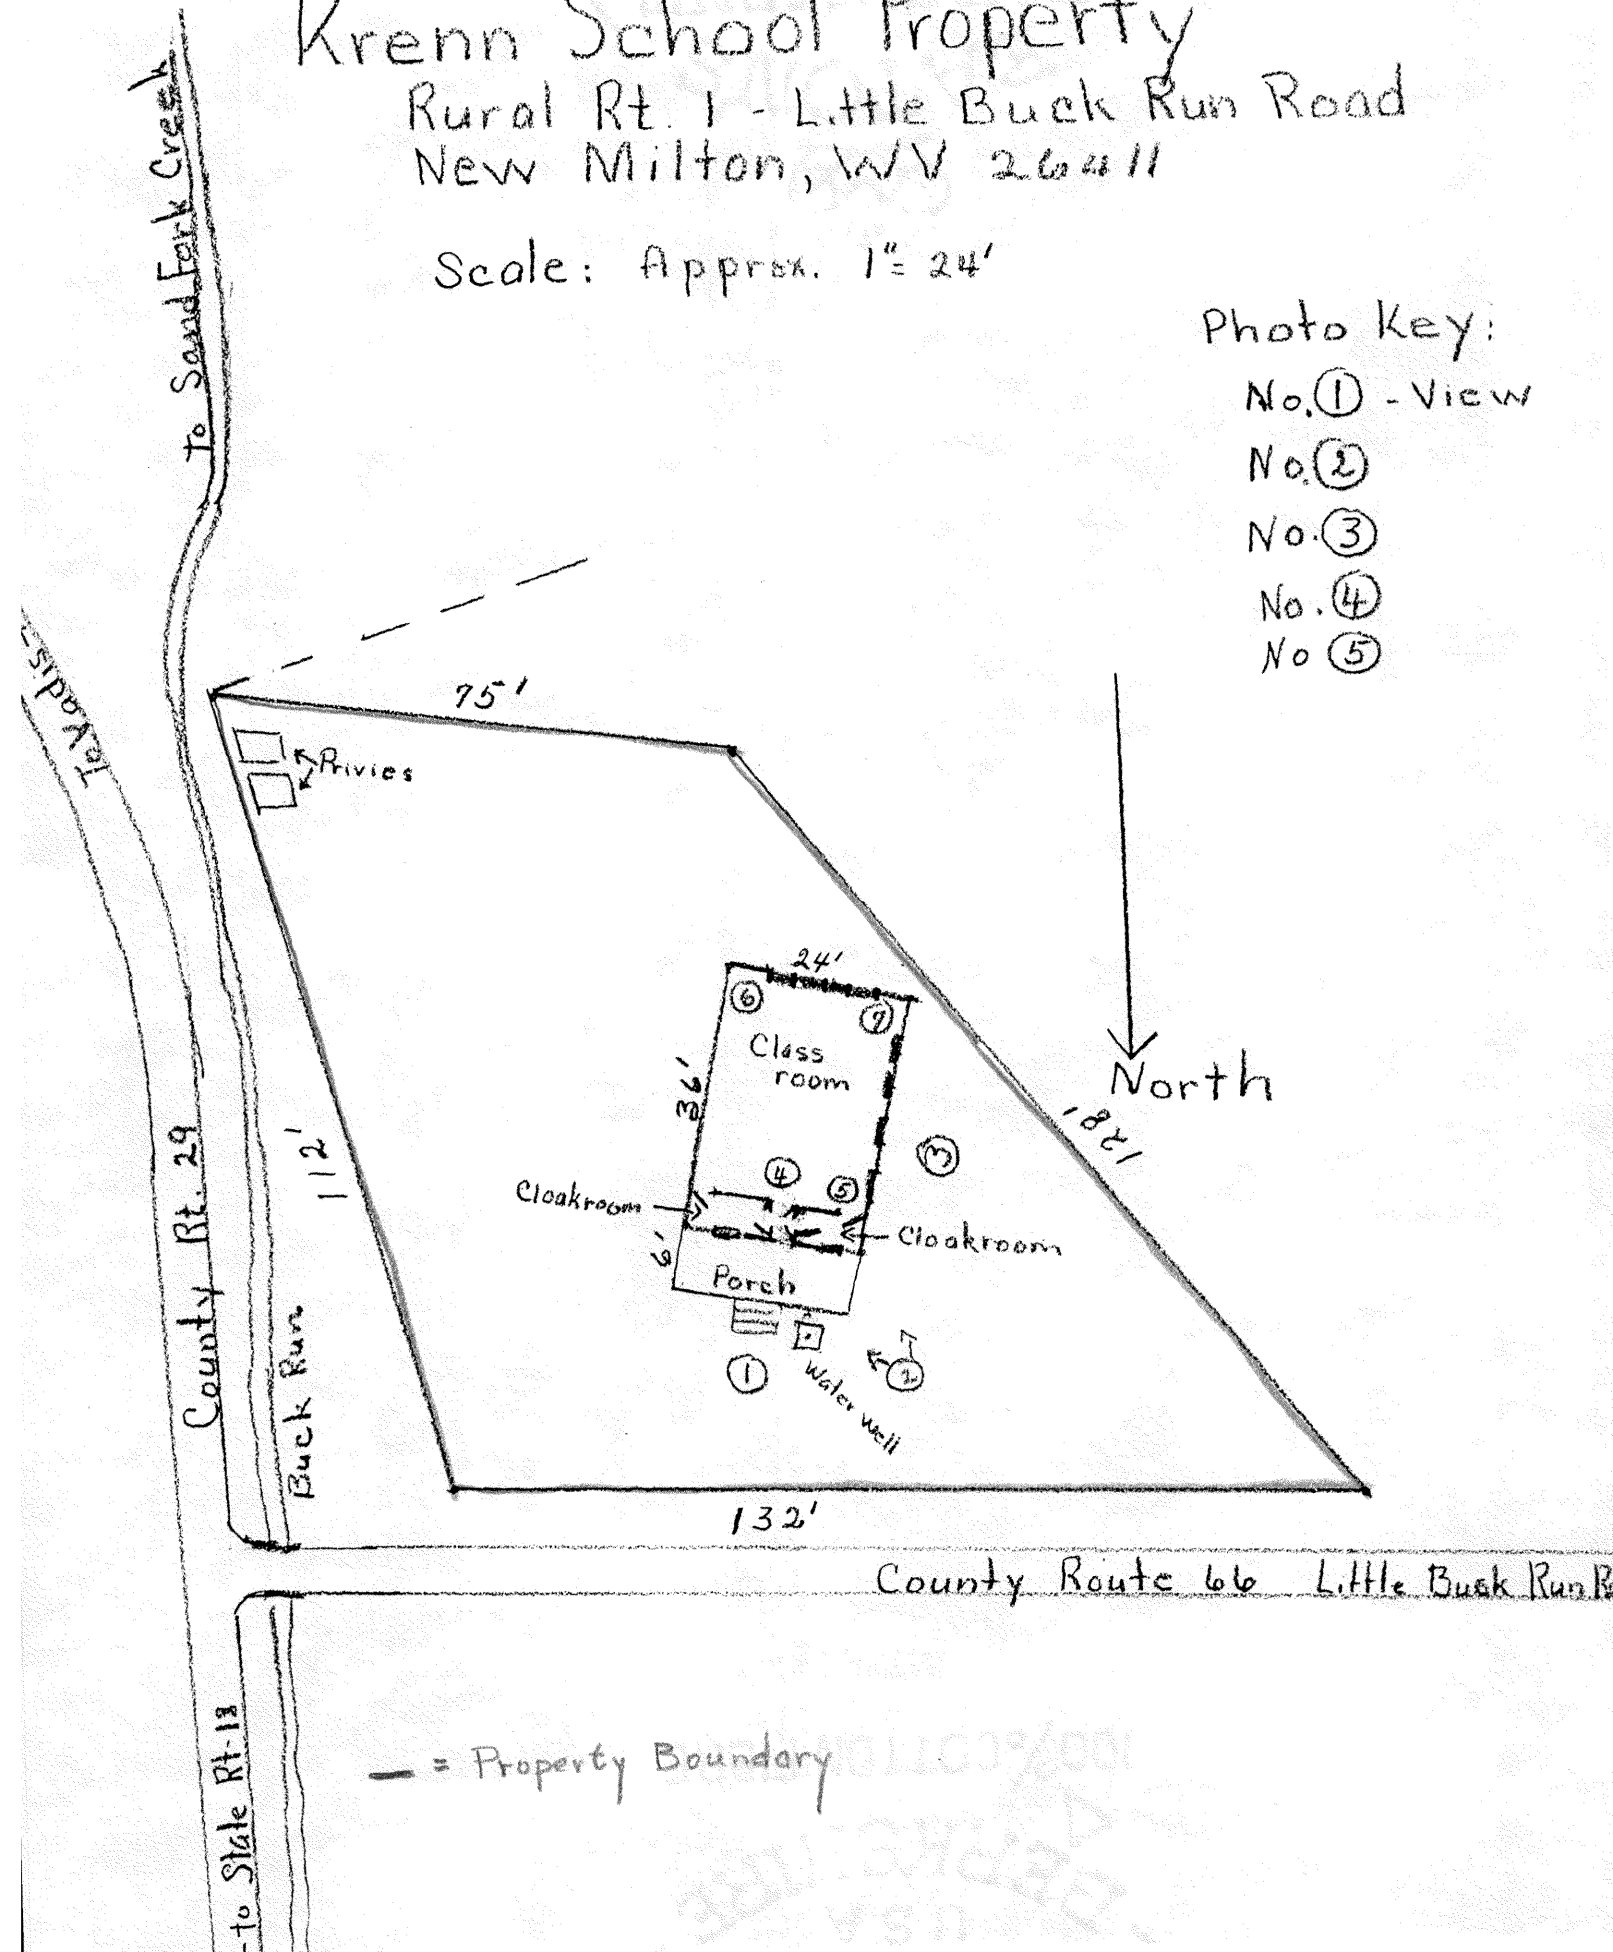 Krenn School Property
Rural Rt. 1 - Little Buck Run Road
New Milton, WV 26411
Scale: Approx. 1"= 24'
Photo Key:
No. 1 - View
No. 2
No. 3
No. 4
No 5
To Sand Fork Creek
To Vadis-
75'
Privies
24'
6
7
Class
room
36'
North
128'
3
4
5
Cloakroom
Cloakroom
6'
Porch
1
2
Water well
112'
County Rt. 29
Buck Run
132'
County Route 66 Little Buck Run R
- to State Rt-18
— = Property Boundary